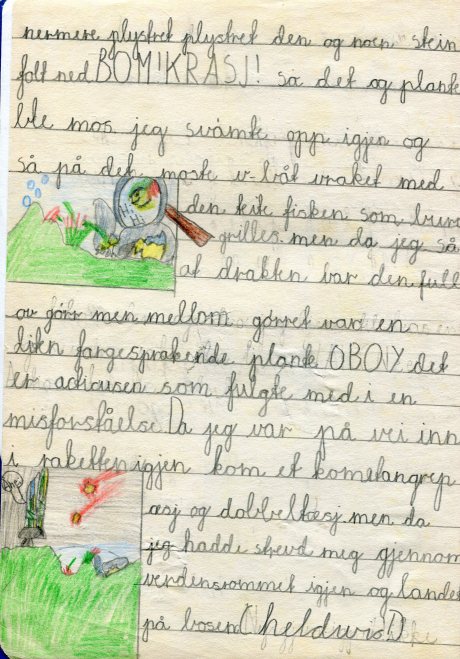 nermere plystret plystret den og noen stein
falt ned BOM!KRASJ! sa det og plank
ble mos. jeg svømte opp igjen og
så på det moste u båt vraket med
den teite fisken som burde
grilles. men da jeg så
at drakten var den full
av gørr men mellom gørret var en
liten fargesprakende plank OBOY det
er adilausen som fulgte med i en
misforståelse. Da jeg var på vei inn
i raketten igjen kom et kometangrep
æsj og dobbeltæsj. men da
jeg hadde strevd meg gjennom
verdensrommet igjen og landet
på basen (heldivis)